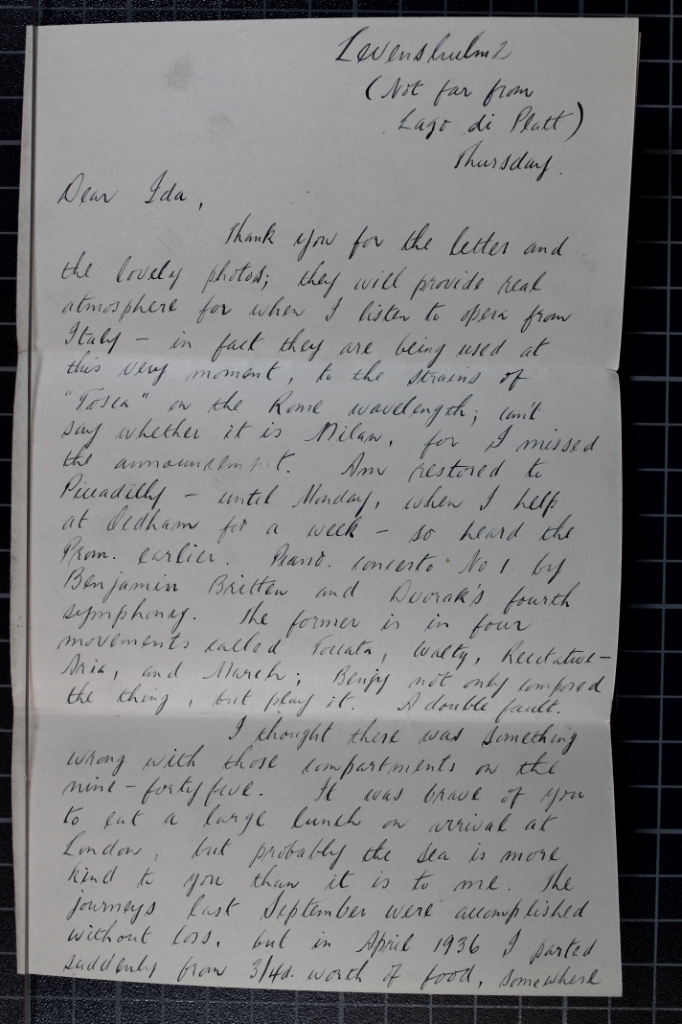 Levenshulme
(Not far from
Lago di Platt)
Thursday.
Dear Ida,
Thank you for the letter and
the lovely photos; they will provide real
atmosphere for when I listen to opera from
Italy - in fact they are being used at
this very moment, to the strains of
"Tosca" on the Rome wavelength; can't
say whether it is Milan, for I missed
the announcement. Am restored to
Piccadilly - until Monday, when I help
at Oldham for a week - so heard the
Prom. earlier. Piano. concerto No 1. by
Benjamin Britten and Dvorak's fourth
symphony. The former is in four
movements called Toccata, Waltz, Recitative-
Aria, and March; Benjy not only composed
the thing, but play it. A double fault.
I thought there was something
wrong with those compartments on the
nine-fortyfive. It was brave of you
to eat a large lunch on arrival at
London, but probably the sea is more
kind to you than it is to me. The
journeys last September were accomplished
without loss, but in April 1936 I parted
suddenly from 3/4d. worth of food, somewhere